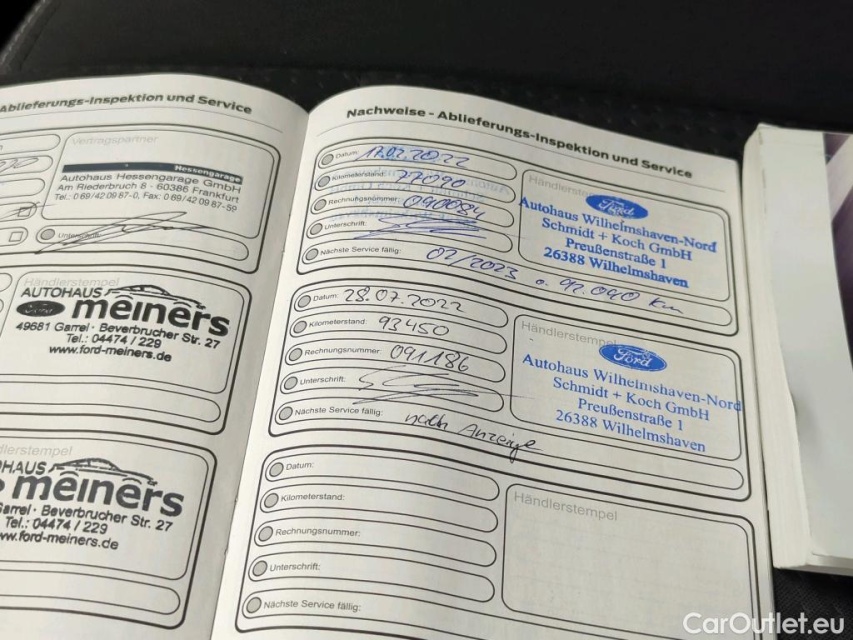 Ablieferungs-Inspektion und Service
Vertragspartner
Hessengarage
Autohaus Hessengarage GmbH
Am Riederbruch 8 - 60386 Frankfurt
Tel.: 0 69/42 09 87-0, Fax: 0 69/42 09 87-59
Händlerstempel
AUTOHAUS
Ford meiners
49681 Garrel · Beverbrucher Str. 27
Tel.: 04474 / 229
www.ford-meiners.de
dlerstempel
HAUS
meiners
Garrel · Beverbrucher Str. 27
Tel.: 04474 / 229
w.ford-meiners.de
Nachweise - Ablieferungs-Inspektion und Service
Datum: 17.02.2022
Kilometerstand: 77090
Rechnungsnummer: 090084
Unterschrift:
Nächste Service fällig: 02/2023 o. 92.090 km
Händlerstempel
Ford
Autohaus Wilhelmshaven-Nord
Schmidt + Koch GmbH
Preußenstraße 1
26388 Wilhelmshaven
Datum: 28.07.2022
Kilometerstand: 93450
Rechnungsnummer: 091186
Unterschrift:
Nächste Service fällig: nach Anzeige
Händlerstempel
Ford
Autohaus Wilhelmshaven-Nord
Schmidt + Koch GmbH
Preußenstraße 1
26388 Wilhelmshaven
Datum:
Kilometerstand:
Rechnungsnummer:
Unterschrift:
Nächste Service fällig:
Händlerstempel
CarOutlet.eu